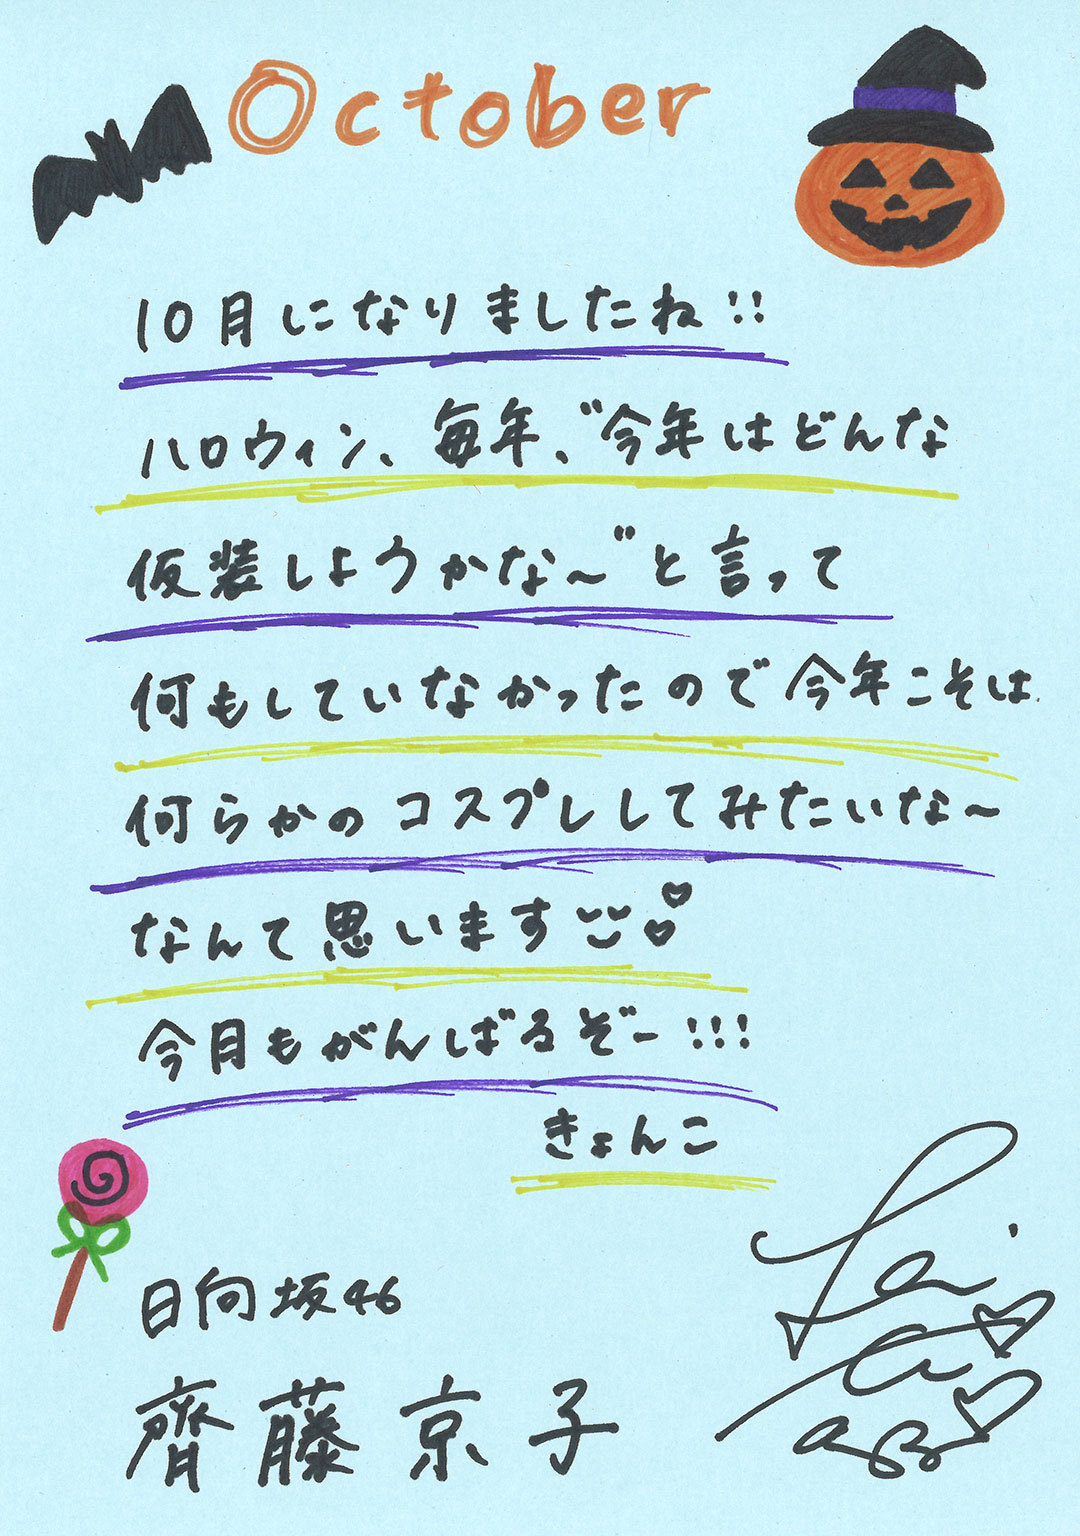 October
10月になりましたね!!
ハロウィン、毎年、“今年はどんな
仮装しようかな〜”と言って
何もしていなかったので今年こそは
何らかのコスプレしてみたいな〜
なんて思います
今月もがんばるぞー!!!
きょんこ
日向坂46
齊藤京子